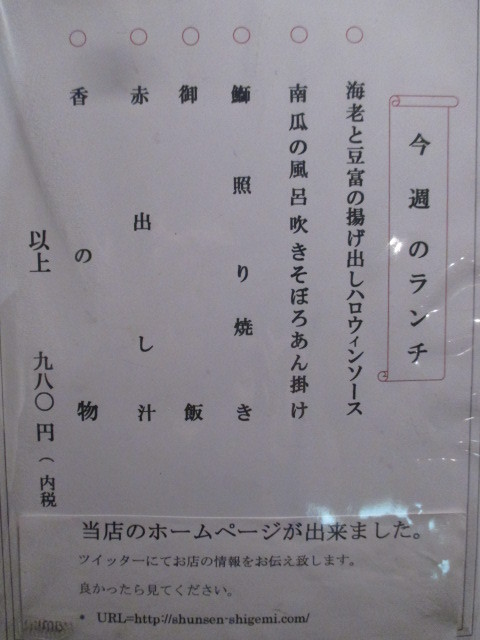 今週のランチ
○ 海老と豆富の揚げ出しハロウィンソース
○ 南瓜の風呂吹きそぼろあん掛け
○ 鰤照り焼き
○ 御飯
○ 赤出し汁
○ 香の物
以上 九八〇円（内税
当店のホームページが出来ました。
ツイッターにてお店の情報をお伝え致します。
良かったら見てください。
* URL=http://shunsen-shigemi.com/